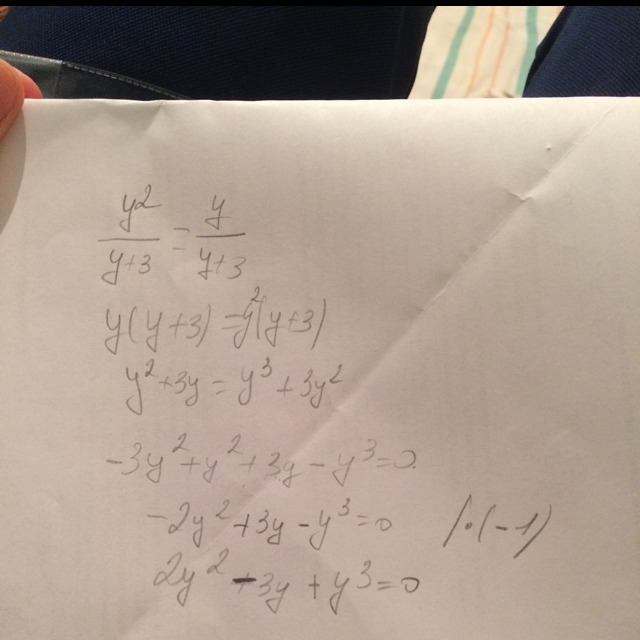 y²/y+3 = y/y+3
y(y+3)=y²(y+3)
y²+3y=y³+3y²
-3y²+y²+3y-y³=0
-2y²+3y-y³=0 /·(-1)
2y²-3y+y³=0